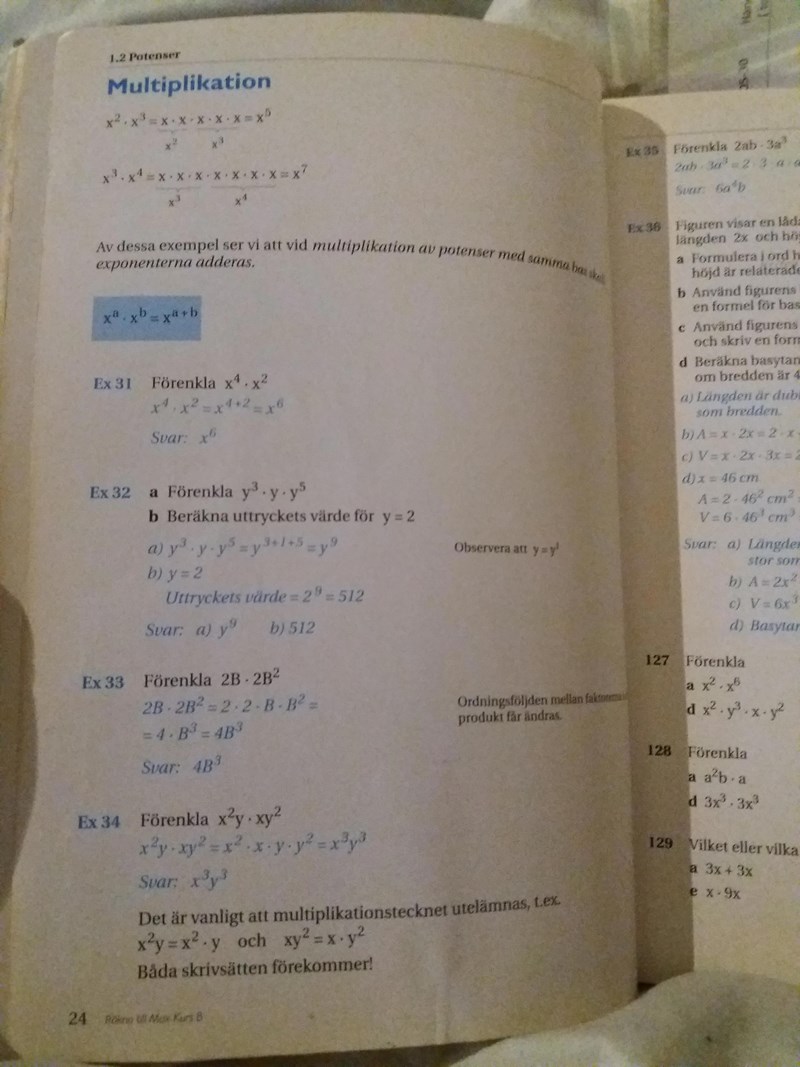 1.2 Potenser
Multiplikation
x² · x³ = x · x · x · x · x = x⁵
x² x³
x³ · x⁴ = x · x · x · x · x · x · x = x⁷
x³ x⁴
Av dessa exempel ser vi att vid multiplikation av potenser med samma bas skall
exponenterna adderas.
xᵃ · xᵇ = xᵃ⁺ᵇ
Ex 31 Förenkla x⁴ · x²
x⁴ · x² = x⁴⁺² = x⁶
Svar: x⁶
Ex 32 a Förenkla y³ · y · y⁵
b Beräkna uttryckets värde för y = 2
a) y³ · y · y⁵ = y³⁺¹⁺⁵ = y⁹ Observera att y = y¹
b) y = 2
Uttryckets värde = 2⁹ = 512
Svar: a) y⁹ b) 512
Ex 33 Förenkla 2B · 2B²
2B · 2B² = 2 · 2 · B · B² = Ordningsföljden mellan
= 4 · B³ = 4B³ produkt får ändras.
Svar: 4B³
Ex 34 Förenkla x²y · xy²
x²y · xy² = x² · x · y · y² = x³y³
Svar: x³y³
Det är vanligt att multiplikationstecknet utelämnas, t.ex.
x²y = x² · y och xy² = x · y²
Båda skrivsätten förekommer!
24 Räkna till Max Kurs B
Ex 35 Förenkla 2ab · 3a³
2ab · 3a³ = 2 · 3 · a ·
Svar: 6a⁴b
Ex 36 Figuren visar en
längden 2x och
a Formulera i ord
höjd är
b Använd figurens
en formel för
c Använd figurens
och skriv en
d Beräkna
om bredden är 4
a) Längden är
som bredden.
b) A = x · 2x = 2 · x ·
c) V = x · 2x · 3x =
d) x = 46 cm
A = 2 · 46² cm²
V = 6 · 46³ cm³
Svar: a)
stor som
b) A = 2x²
c) V = 6x³
d)
127 Förenkla
a x² · x⁶
d x² · y³ · x · y²
128 Förenkla
a a²b · a
d 3x³ · 3x³
129 Vilket eller vilka
a 3x + 3x
e x · 9x